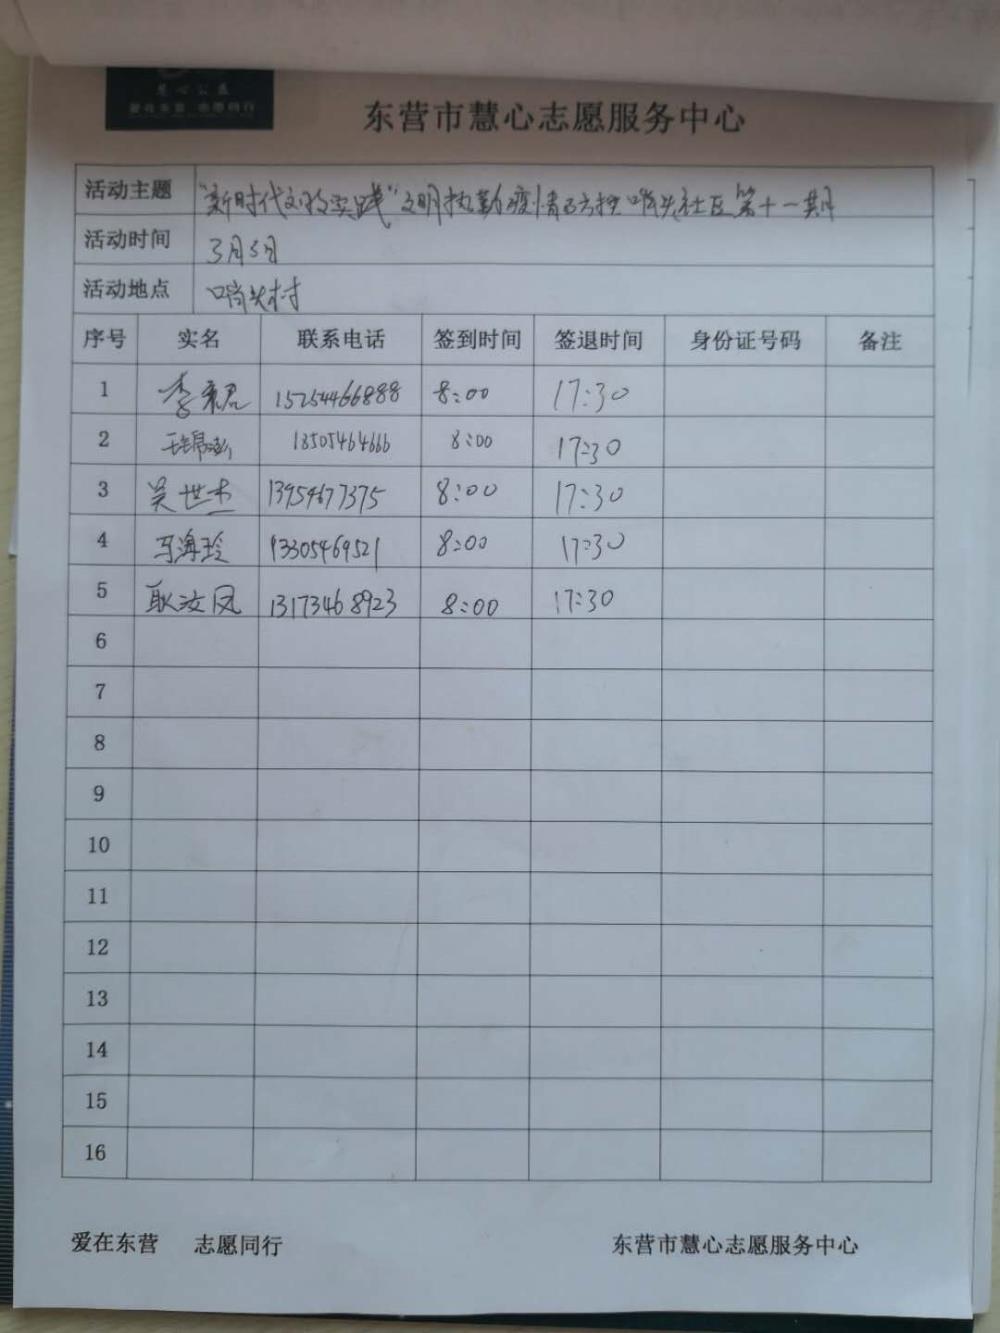 慧心公益
爱在东营 志愿同行
东营市慧心志愿服务中心
活动主题 "新时代文明实践"文明执勤疫情防控 哨头社区第十一期
活动时间 3月5日
活动地点 哨头村
序号 实名 联系电话 签到时间 签退时间 身份证号码 备注
1 李 15254466888 8:00 17:30
2 13505464666 8:00 17:30
3 吴世杰 13954677375 8:00 17:30
4 马海玲 13305469521 8:00 17:30
5 耿汝凤 13173468923 8:00 17:30
6
7
8
9
10
11
12
13
14
15
16
爱在东营 志愿同行 东营市慧心志愿服务中心